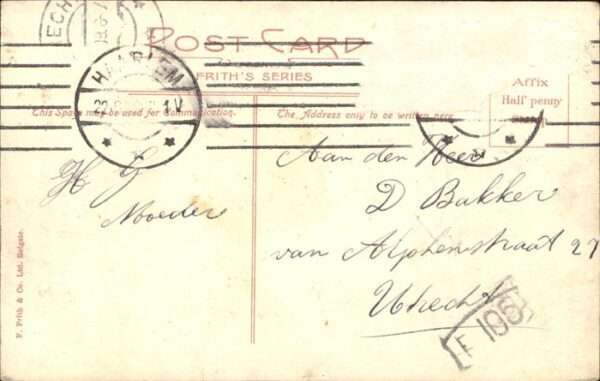 POST CARD
FRITH'S SERIES
HAARLEM
1.V
Affix
Half penny
This Space may be used for Communication.
The Address only to be written here.
Aan den Heer
D Bakker
van Alphenstraat 27
Utrecht
H G
Moeder
F. Frith & Co. Ltd. Reigate.